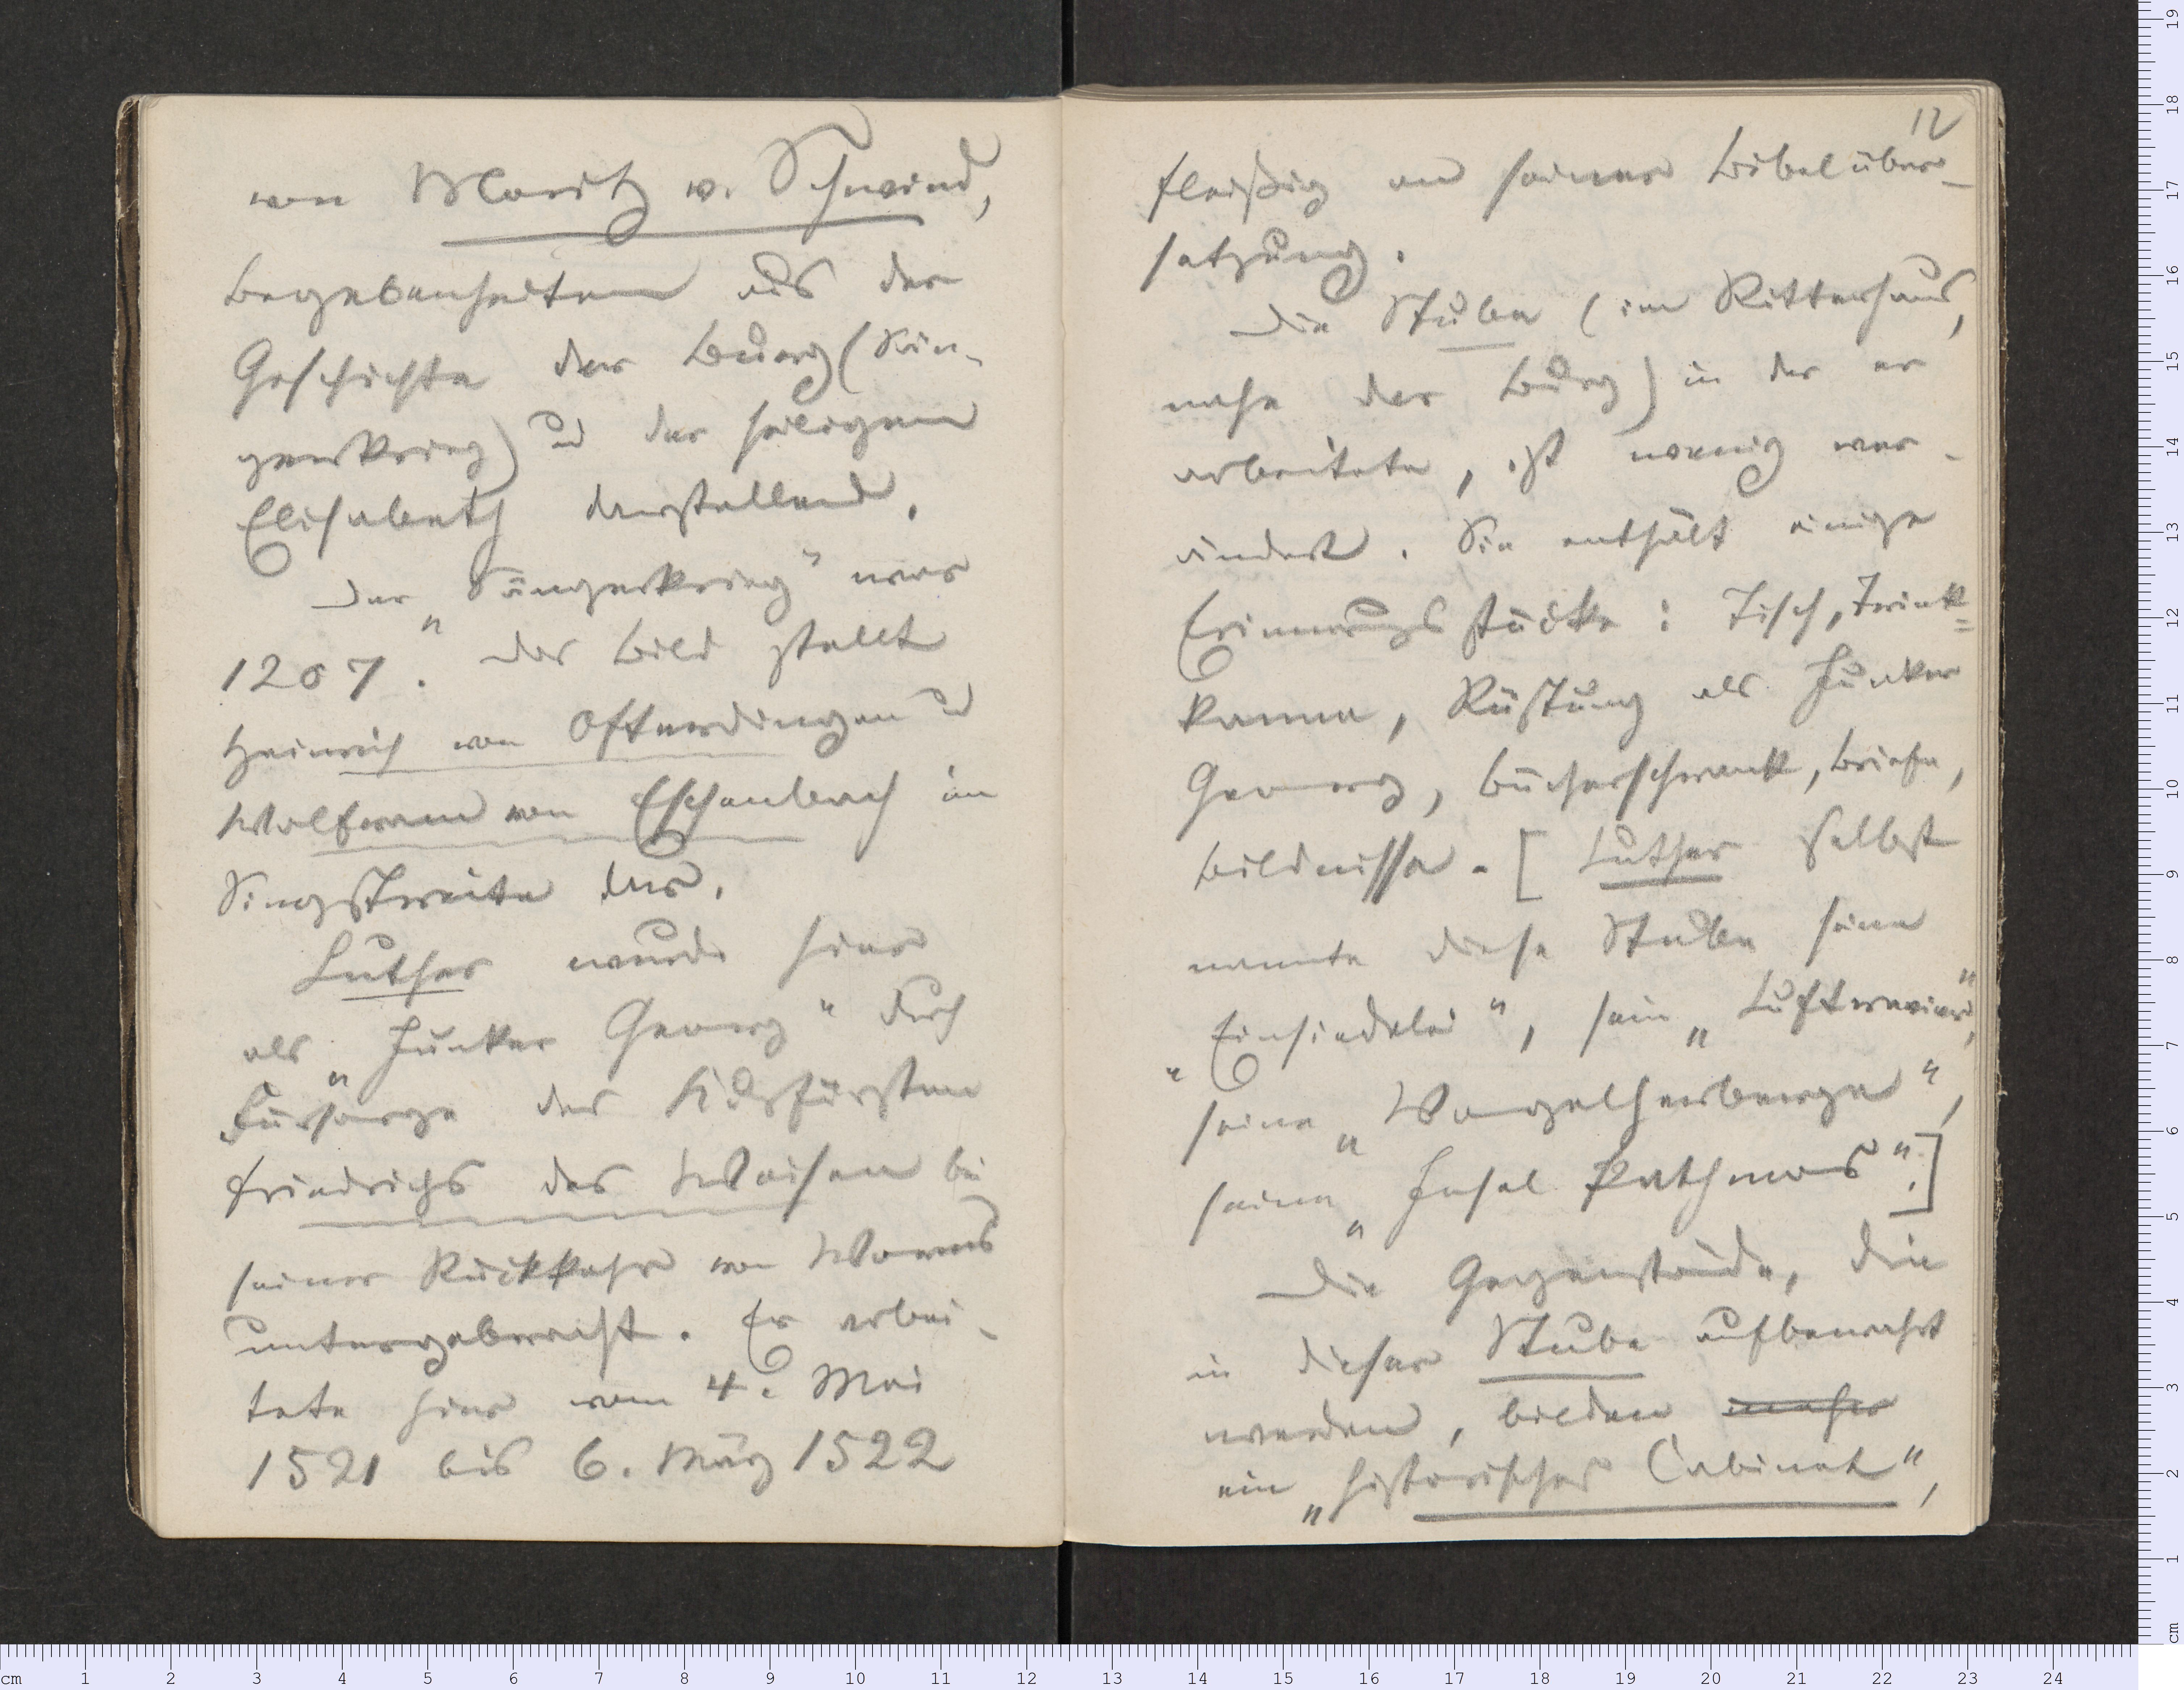 von Moritz v. Schwind,
Begebenheiten aus der
Geschichte der Burg (Sän-
gerkrieg) u der heiligen
Elisabeth darstellend.
Der „Sängerkrieg" war
1207. Das Bild stellt
Heinrich von Ofterdingen u
Wolfram von Eschenbach im
Singstreite dar.
Luther wurde hier
als „Junker Georg" durch
Fürsorge des Kurfürsten
Friedrichs des Weisen bei
seiner Rückkehr von Worms
untergebracht. Er arbei-
tete hier vom 4. Mai
1521 bis 6. März 1522
12
fleißig an seiner Bibelüber-
setzung.
Die Stube (im Ritterhaus,
nahe der Burg) in der er
arbeitete, ist wenig ver-
ändert. Sie enthält einige
Erinnerungsstücke: Tisch, Trink-
kanne, Rüstung als Junker
Georg, Bücherschrank, Briefe,
Bildnisse. [Luther selbst
nannte diese Stube seine
„Einsiedelei", sein „Luftrevier",
seine „Vogelherberge",
seine „Insel Pathmos".]
Die Gegenstände, die
in dieser Stube aufbewahrt
werden, bilden mehr
ein „historisches Cabinet",